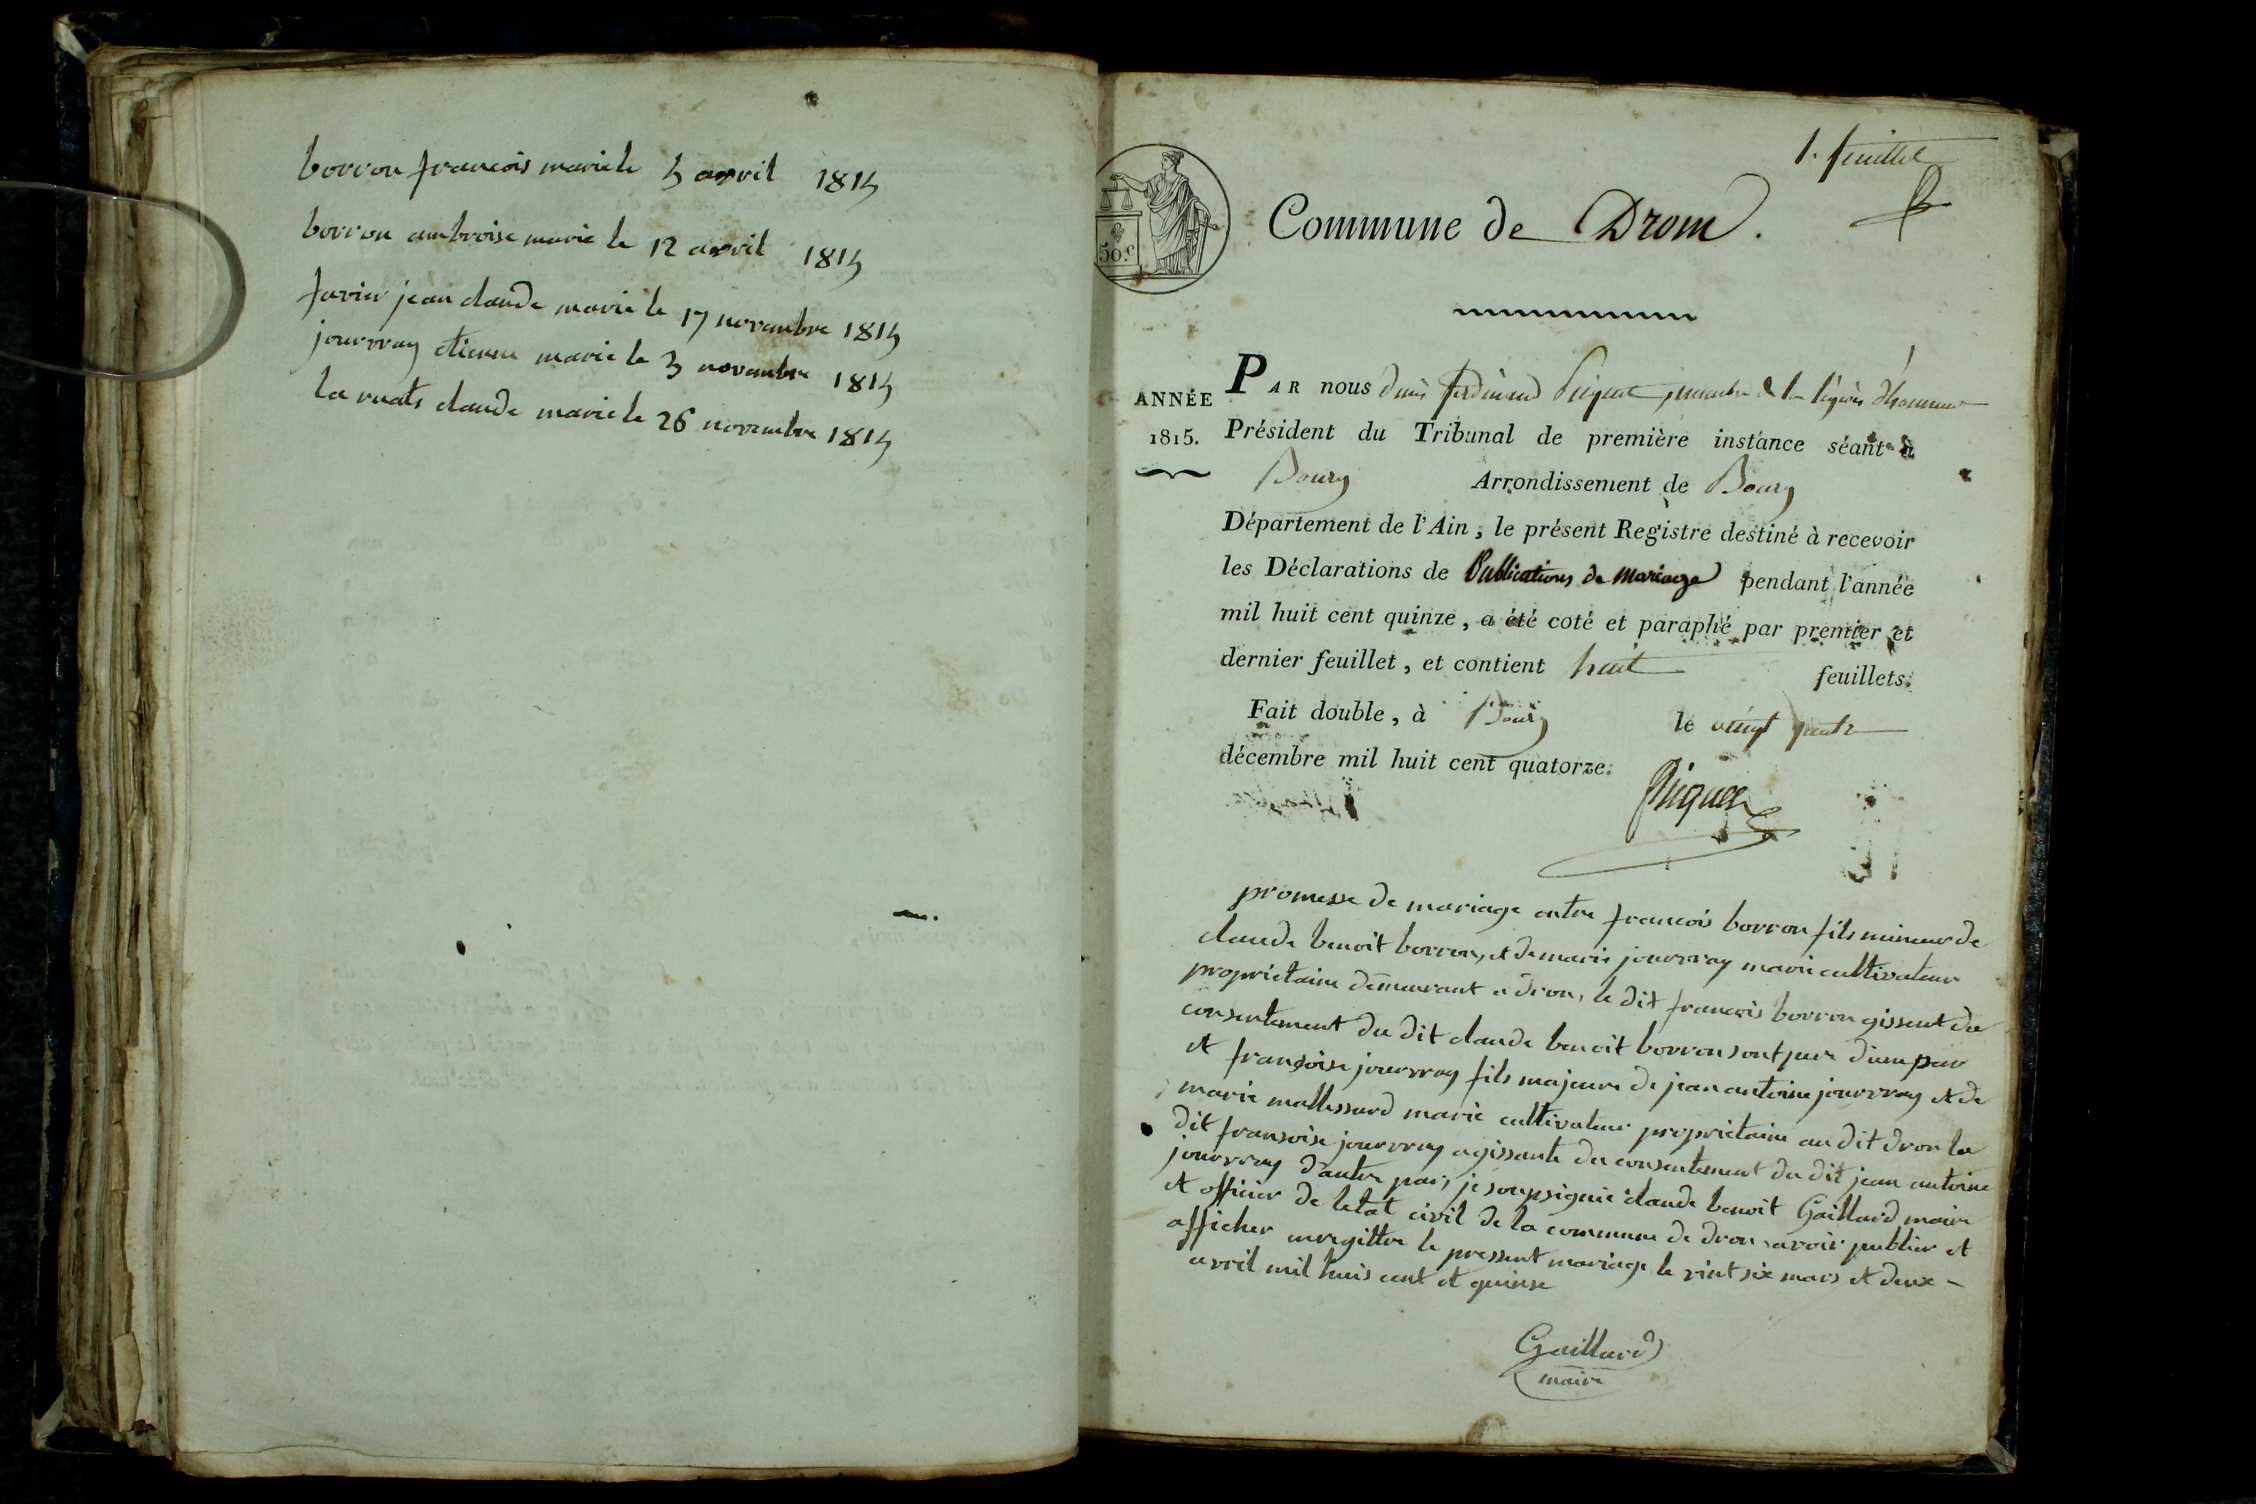 borron francois marie le 5 avril 1815
borron ambroise marie le 12 avril 1815
favier jean claude marie le 17 novembre 1815
jourvray etienne marie le 3 novembre 1815
la ruats claude marie le 26 novembre 1815
1. feuillet
50.c
Commune de Drom.
ANNÉE
1815.
PAR nous denis ferdinand Piquet, membre de la légion d'honneur
Président du Tribunal de première instance séant à
Bourg Arrondissement de Bourg
Département de l'Ain, le présent Registre destiné à recevoir
les Déclarations de Publications de Mariage pendant l'année
mil huit cent quinze, a été coté et paraphé par premier et
dernier feuillet, et contient huit feuillets.
Fait double, à Bourg le vingt
décembre mil huit cent quatorze.
Piquet
promesse de mariage entre francois borron fils mineur de
claude benoit borron, et de marie jourvray marie cultivateur
proprietaire demeurant a dron, le dit francois borron gissent du
consentement du dit claude benoit borron sont pere d'une par
et fransoise jourvray fils majeure de jean antoine jourvray et de
marie mallessard marie cultivateur proprietaire au dit dron la
dit fransoise jourvray agissante du consentement du dit jean antoine
jourvray d'autre par, je soupsignie claude benoit Gaillard maire
et officier de letat civil de la commune de dron avoir publier et
afficher enregittre le pressent mariage le vint six mars et deux -
avril mil huis cent et quinse
Gaillard
maire